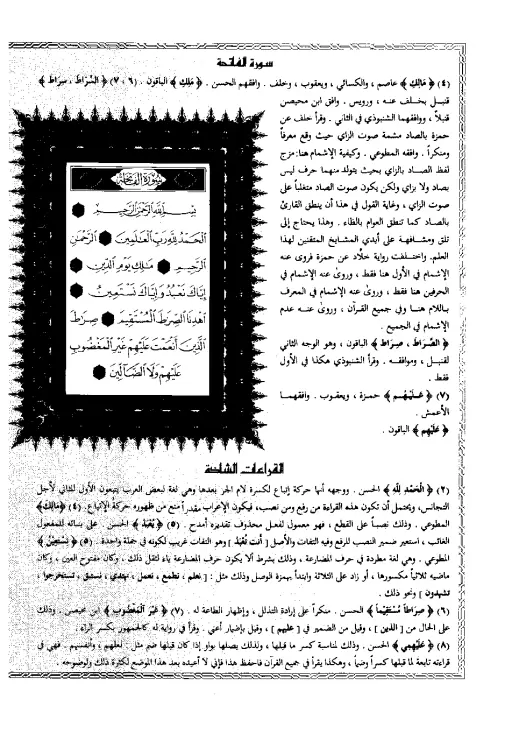 سورة الفاتحة
(٤) ﴿ مَالِكِ ﴾ عاصم ، والكسائي ، ويعقوب ، وخلف . وافقهم الحسن . ﴿ مَلِكِ ﴾ الباقون . (٦ ، ٧) ﴿ السِّرَاطَ ، سِرَاطَ ﴾
قنبل بخلف عنه ، ورويس . وافق ابن محيصن
قنبلاً ، ووافقهما الشنبوذي في الثاني . وقرأ خلف عن
حمزة بالصاد مشمة صوت الزاي حيث وقع معرفاً
ومنكراً . وافقه المطوعي . وكيفية الإشمام هنا: مزج
لفظ الصاد بالزاي بحيث يتولد منهما حرف ليس
بصاد ولا بزاي ولكن يكون صوت الصاد متغلباً على
صوت الزاي ، وغاية القول في هذا أن ينطق القارئ
بالصاد كما تنطق العوام بالظاء . وهذا يحتاج إلى
تلق ومشافهة على أيدي المشايخ المتقنين لهذا
العلم. واختلفت رواية خلّاد عن حمزة فروى عنه
الإشمام في الأول هنا فقط ، وروىٰ عنه الإشمام في
الحرفين هنا فقط ، وروىٰ عنه الإشمام في المعرف
باللام هنا وفي جميع القرآن ، وروىٰ عنه عدم
الإشمام في الجميع .
﴿ الصِّرَاطَ ، صِرَاطَ ﴾ الباقون ، وهو الوجه الثاني
لقنبل ، وموافقه . وقرأ الشنبوذي هكذا في الأول
فقط .
(٧) ﴿ عَلَيْهُم ﴾ حمزة ، ويعقوب . وافقهما
الأعمش .
﴿ عَلَيْهِم ﴾ الباقون .
سُورَةُ الفَاتِحَةِ
بِسْمِ اللَّهِ الرَّحْمَٰنِ الرَّحِيمِ
الْحَمْدُ لِلَّهِ رَبِّ الْعَالَمِينَ الرَّحْمَٰنِ
الرَّحِيمِ مَالِكِ يَوْمِ الدِّينِ
إِيَّاكَ نَعْبُدُ وَإِيَّاكَ نَسْتَعِينُ
اهْدِنَا الصِّرَاطَ الْمُسْتَقِيمَ صِرَاطَ
الَّذِينَ أَنْعَمْتَ عَلَيْهِمْ غَيْرِ الْمَغْضُوبِ
عَلَيْهِمْ وَلَا الضَّالِّينَ
القراءات الشاذة
(٢) ﴿ الْحَمْدِ لِلَّهِ ﴾ الحسن . ووجهه أنها حركة إتباع لكسرة لام الجر بعدها وهي لغة لبعض العرب يتبعون الأول للثاني لأجل
التجانس، ويحتمل أن تكون هذه القراءة من رفع ومن نصب، فيكون الإعراب مقدراً منع من ظهوره حركةُ الإتباع. (٤) ﴿مَالِكَ﴾
المطوعي . وذلك نصباً على القطع ، فهو معمول لفعل محذوف تقديره أمدح . (٥) ﴿ يُعْبَدُ ﴾ الحسن . على بنائه للمفعول
الغائب ، استعير ضمير النصب للرفع وفيه التفات والأصل [ أنت تُعْبَدُ ] وهو التفات غريب لكونه في جملة واحدة . (٥) ﴿ نِسْتَعِينُ ﴾
المطوعي . وهي لغة مطردة في حرف المضارعة ، وذلك بشرط ألا يكون حرف المضارعة ياء لثقل ذلك ، وكان مفتوح العين ، وكان
ماضيه ثلاثياً مكسورها ، أو زاد على الثلاثة وابتدأ بهمزة الوصل وذلك مثل : [ نعلم ، نطمع ، نعمل ، نهتدي ، نستبق ، تستخرجوا ،
تشهدون ] ونحو ذلك .
(٦) ﴿ صِرَاطًا مُسْتَقِيمًا ﴾ الحسن . منكراً على إرادة التذلل ، وإظهار الطاعة له . (٧) ﴿ غَيْرَ الْمَغْضُوبِ ﴾ ابن محيصن . وذلك
على الحال من [ الذين ] ، وقيل من الضمير في [ عليهم ] ، وقيل بإضمار أعني . وقرأ في رواية له كالجمهور بكسر الراء .
(٨) ﴿ عَلَيْهِمِي ﴾ الحسن . وذلك لمناسبة كسر ما قبلها ، ولذلك يصلها بواو إذا كان قبلها ضم مثل : لعلهم ، وأنفسهم . فهي في
قراءته تابعة لما قبلها كسراً وضماً ، وهكذا يقرأ في جميع القرآن فاحفظ هذا فإني لا أعيده بعد هذا الموضع لكثرة ذلك ولوضوحه .